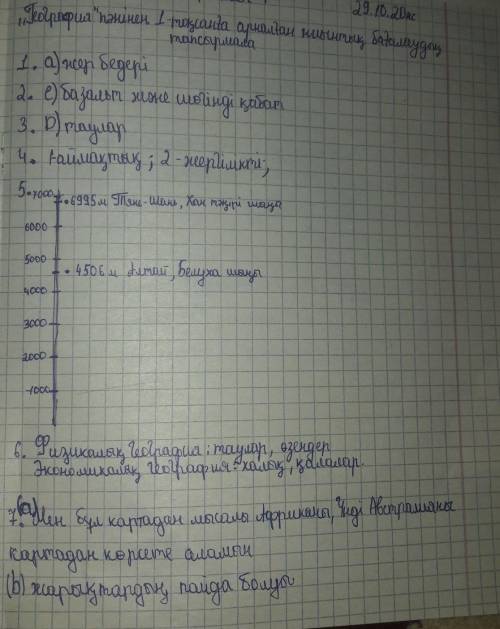 29.10.20ж
"География" пәнінен 1 тоқсанға арналған жиынтық бағалаудың
тапсырмала
1. a) жер бедері
2. c) базальт және шөгінді қабат
3. D) таулар
4. 1-аймақтық; 2-жергілікті;
5. 7000
6995м Тянь-Шань, Хан тәңірі шыңы
6000
5000
4506м Алтай, Белуха шыңы
4000
3000
2000
1000
6. Физикалық География: таулар, өзендер
Экономикалық География: халық, қалалар.
(a)
7. Мен бұл картадан мысалы Африканы, Үнді Австралияны
картадан көрсете аламын
(b) жарықтардың пайда болуы